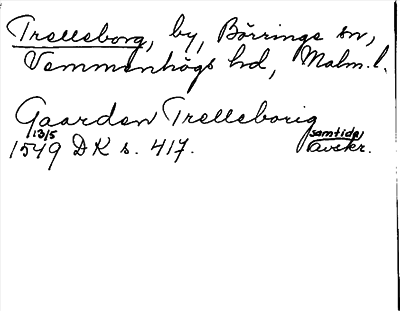 Trelleborg, by, Börringe sn,
Vemmenhögs hd, Malm. l.
Gaarden Trelleborig
13/5 samtida
1549 DK s. 417. avskr.